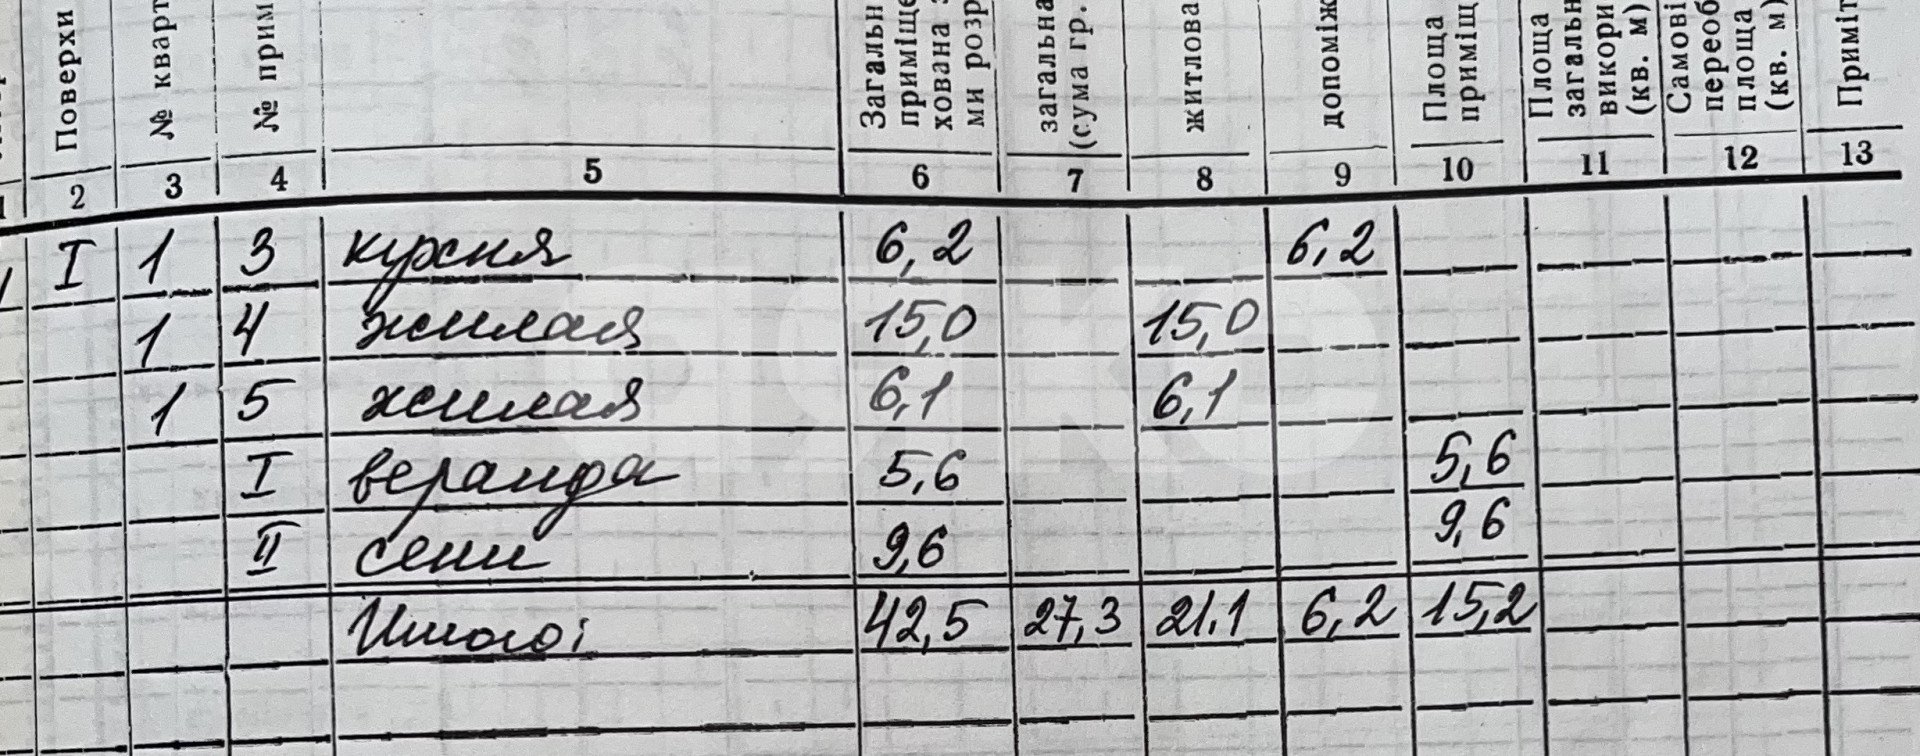 Поверхи
№ кварт
№ прим
Загальн
приміще
хована з
ми розр
загальна
(сума гр.
житлова
допоміж
Площа
приміщ
Площа
загальн
викори
(кв. м)
Самові
переоб
площа
(кв. м)
Приміт
1 2 3 4 5 6 7 8 9 10 11 12 13
I 1 3 кухня 6,2 6,2
1 4 жилая 15,0 15,0
1 5 жилая 6,1 6,1
I веранда 5,6 5,6
II сени 9,6 9,6
Итого: 42,5 27,3 21.1 6,2 15,2